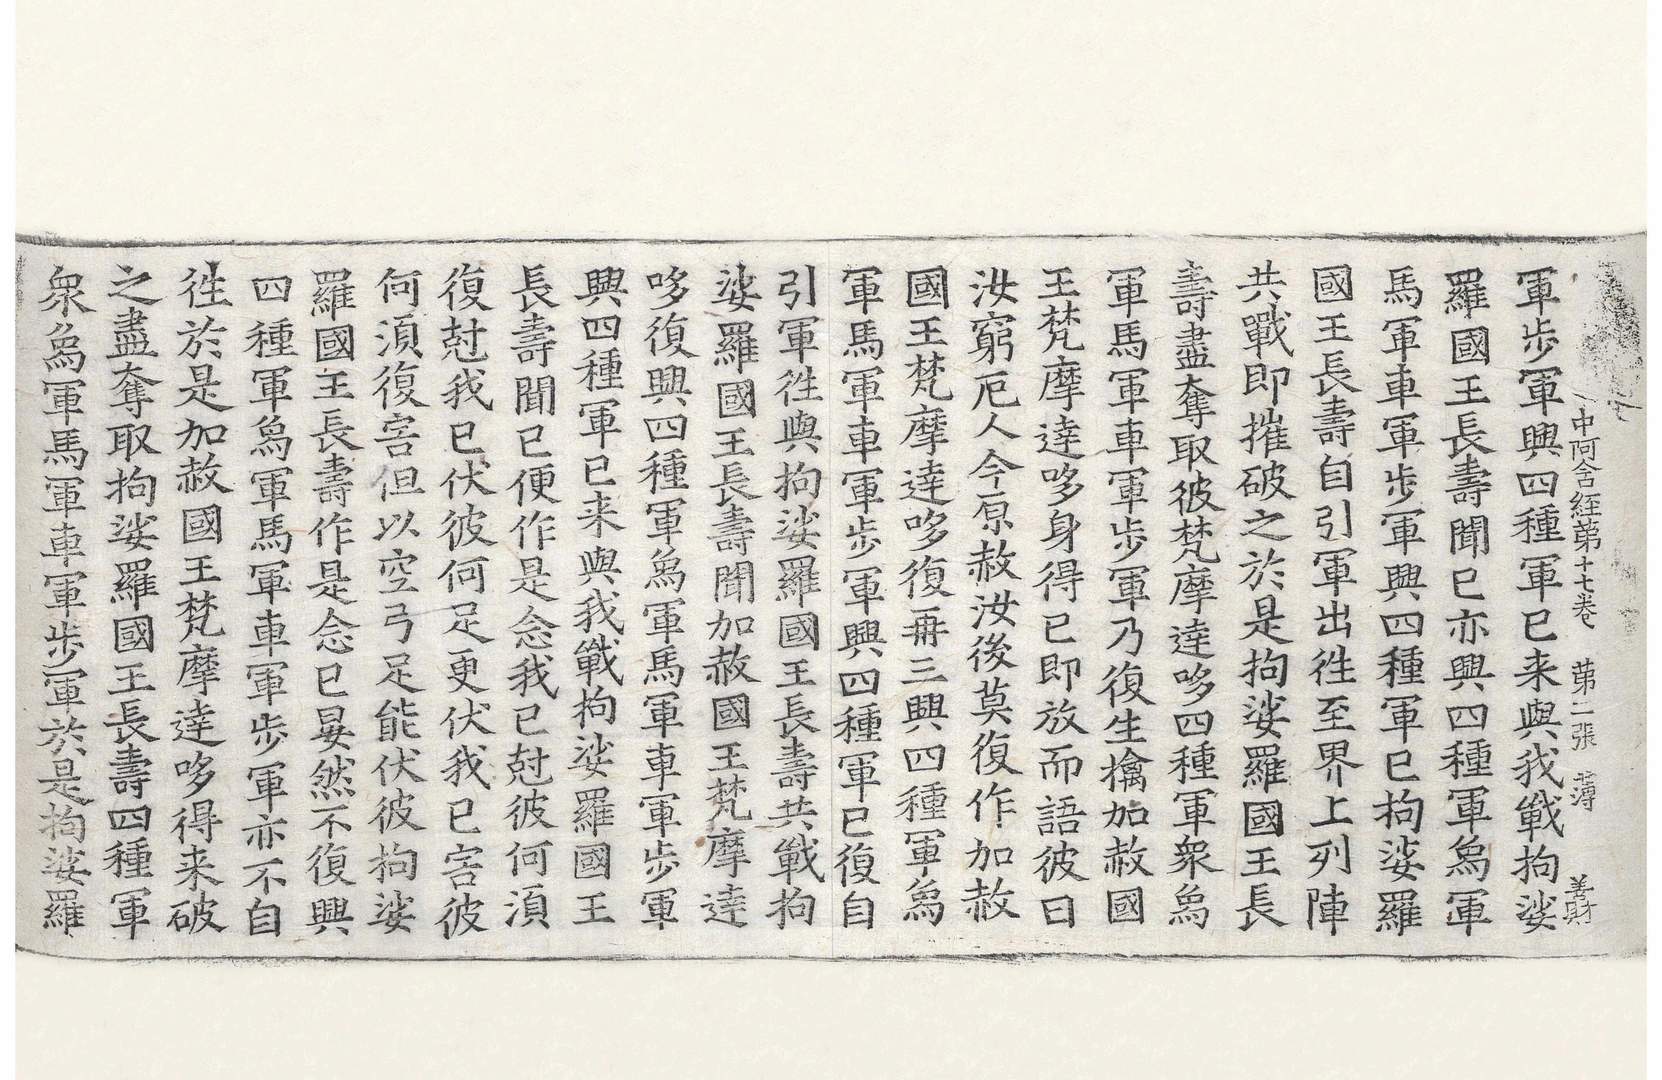 中阿含經第十七卷 第二張 薄 善財
軍步軍興四種軍已来與我戰拘娑
羅國王長壽聞已亦興四種軍象軍
馬軍車軍步軍興四種軍已拘娑羅
國王長壽自引軍出往至界上列陣
共戰即摧破之於是拘娑羅國王長
壽盡奪取彼梵摩達哆四種軍衆象
軍馬軍車軍步軍乃復生擒加赦國
王梵摩達哆身得已即放而語彼曰
汝窮厄人今原赦汝後莫復作加赦
國王梵摩達哆復再三興四種軍象
軍馬軍車軍步軍興四種軍已復自
引軍往與拘娑羅國王長壽共戰拘
娑羅國王長壽聞加赦國王梵摩達
哆復興四種軍象軍馬軍車軍步軍
興四種軍已来與我戰拘娑羅國王
長壽聞已便作是念我已尅彼何須
復尅我已伏彼何足更伏我已害彼
何須復害但以空弓足能伏彼拘娑
羅國王長壽作是念已晏然不復興
四種軍象軍馬軍車軍步軍亦不自
往於是加赦國王梵摩達哆得来破
之盡奪取拘娑羅國王長壽四種軍
衆象軍馬軍車軍步軍於是拘娑羅